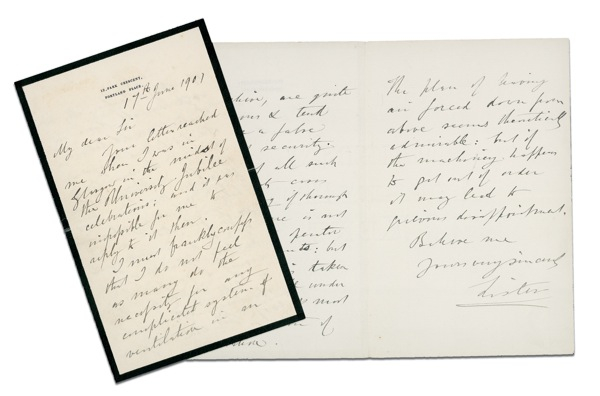 12, PARK CRESCENT,
PORTLAND PLACE.
17th June 1901
My dear Sir
Your letter reached
me when I was in
Glasgow in the midst of
the University Jubilee
celebrations: and it was
impossible for me to
reply to it then.
I must frankly confess
that I do not feel
as many do the
necessity for any
complicated system of
ventilation in an
are quite
& tend
a false
security.
of all such
of thorough
is not
: but
is taken
under
most
of
The plan of having
air forced down from
above seems theoretically
admirable: but if
the machinery happens
to get out of order
it may lead to
grievous disappointment.
Believe me
Yours very sincerely
Lister